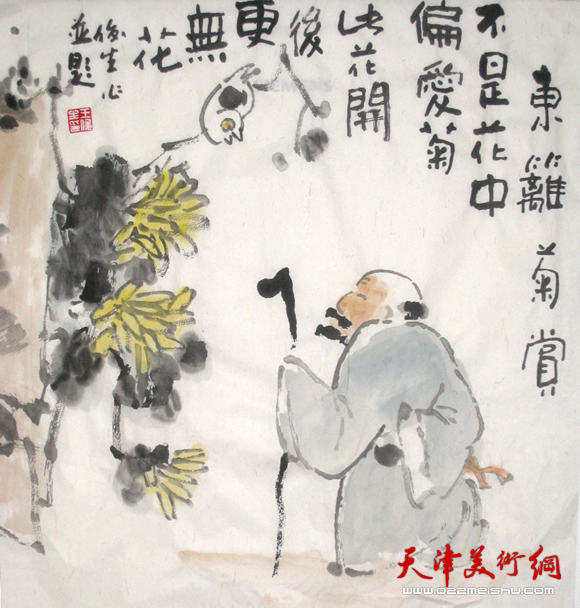 東籬菊賞
不是花中
偏愛菊
此花開
後
更
無
花
俊生作
並题
天津美術網
www.022meishu.com